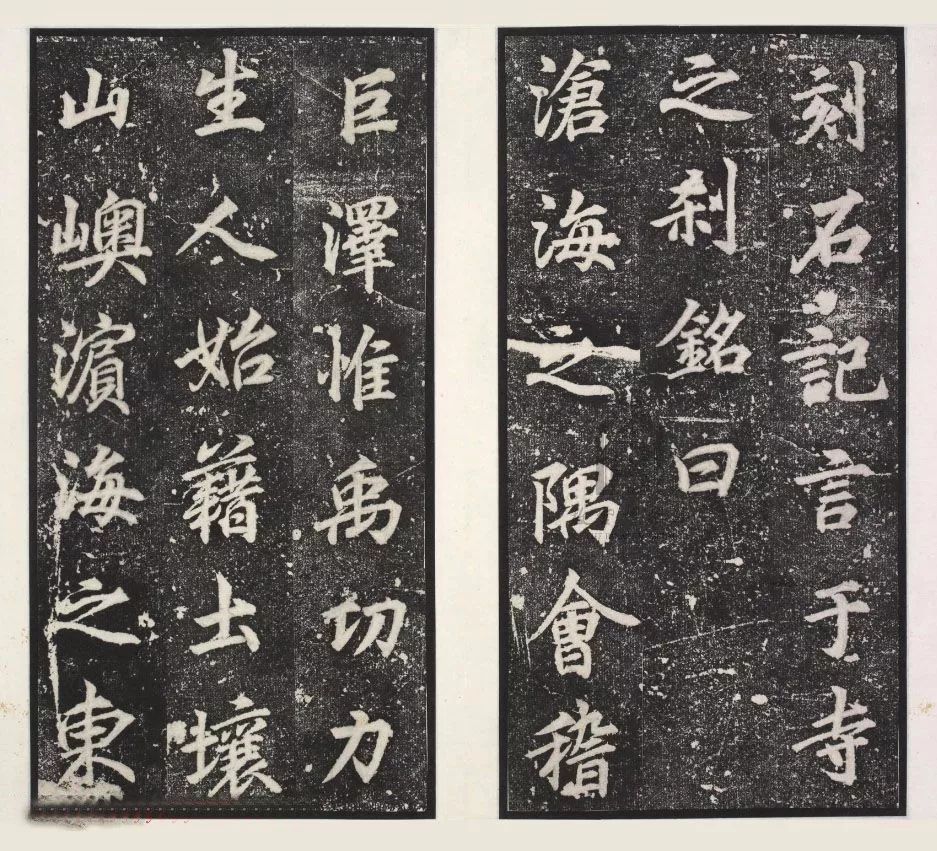 刻石記言于寺
之刹銘曰
滄海之隅會稽
巨澤惟禹切力
生人始藉土壤
山嶴濵海之東